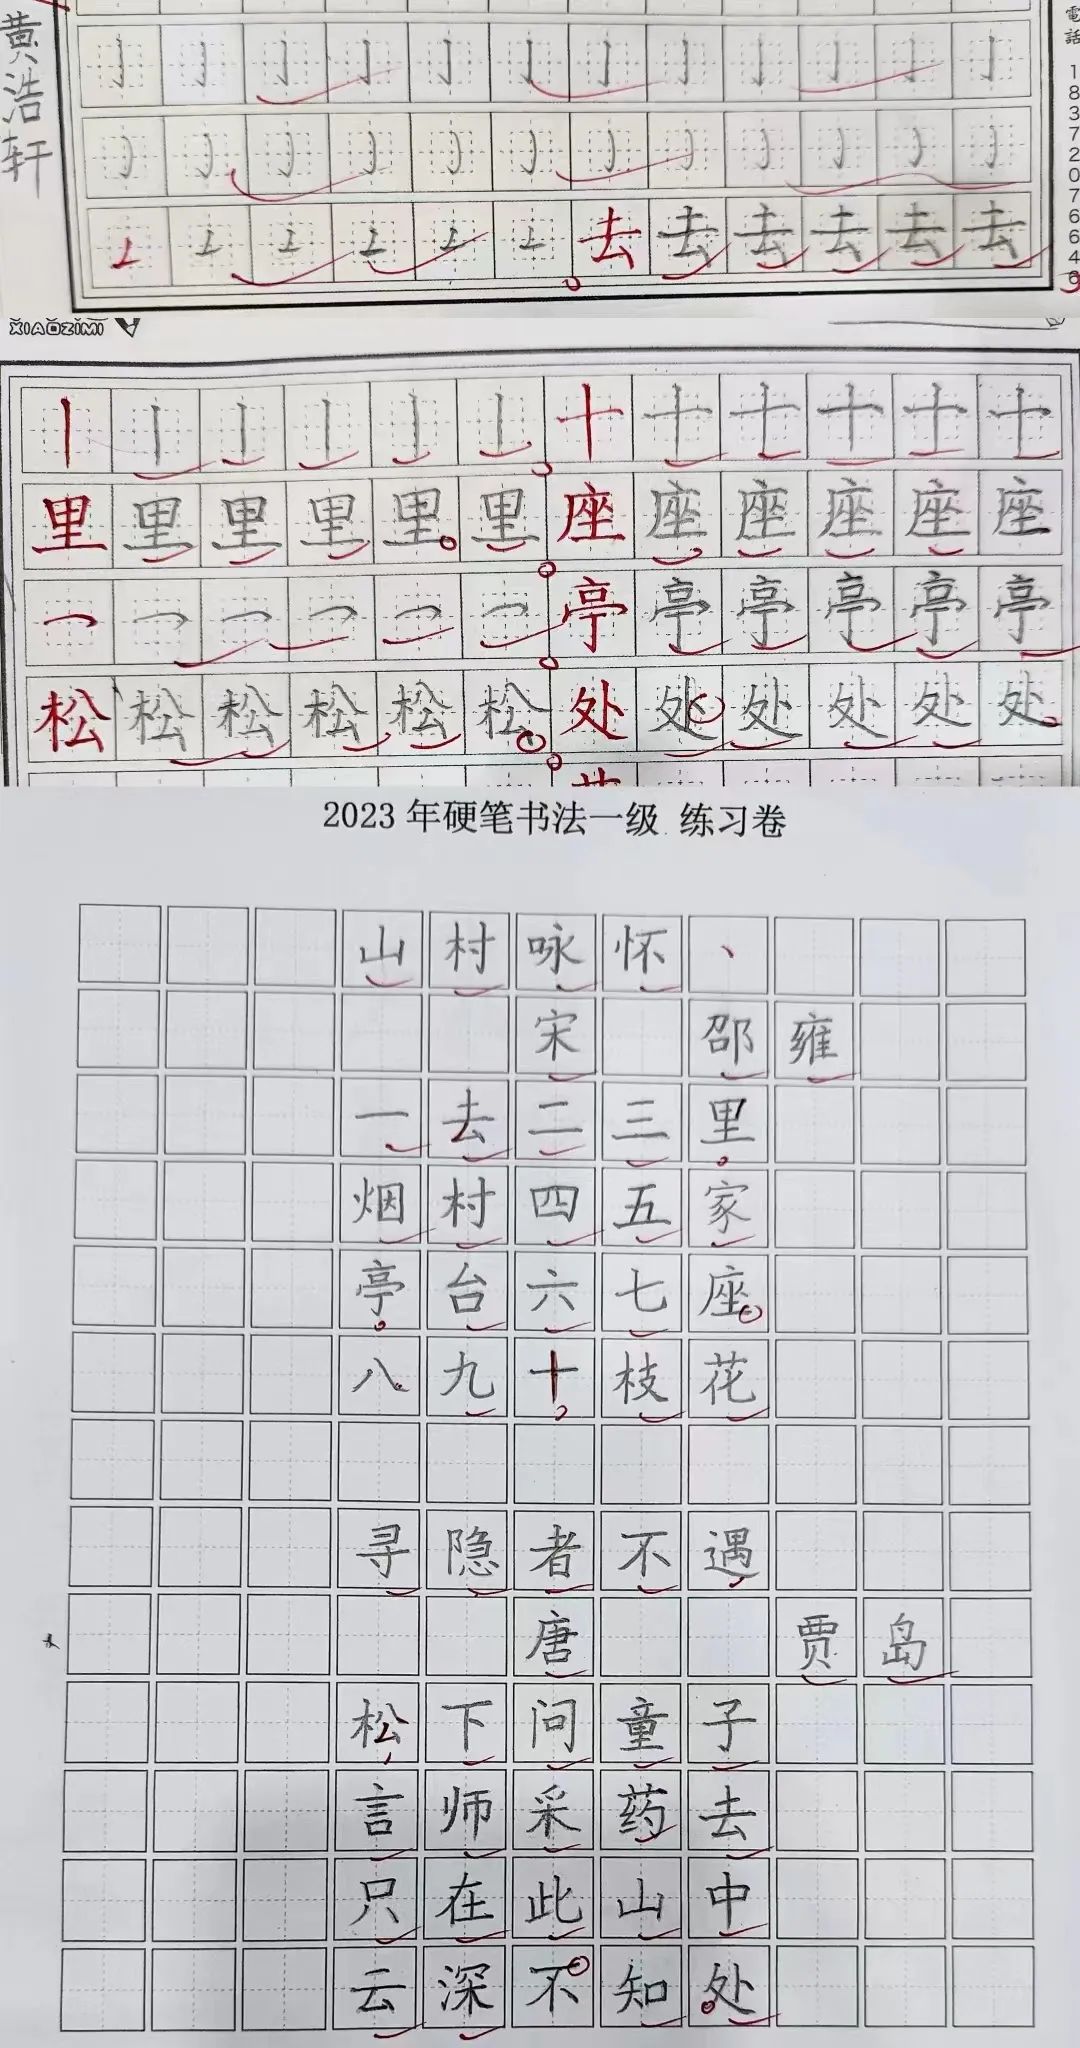 黄浩轩
電話 18372076646
去 去 去 去 去 去
XIAOZIMI
丨 丨 丨 丨 丨 丨 十 十 十 十 十 十
里 里 里 里 里 里 座 座 座 座 座 座
亭 亭 亭 亭 亭 亭
松 松 松 松 松 松 处 处 处 处 处 处
2023年硬笔书法一级 练习卷
山村咏怀、
宋 邵雍
一去二三里
烟村四五家
亭台六七座
八九十枝花
寻隐者不遇
唐 贾岛
松下问童子
言师采药去
只在此山中
云深不知处